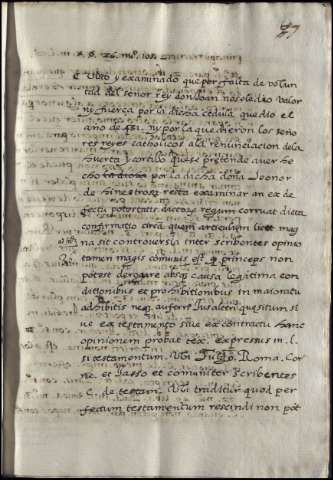 27
Visto y examinado que por falta de volun
tad del señor rey don Joan no se le dio valor
ni fuerça por la dicha cedula que dio el
año de 451. ny por la que dieron los seño
res reyes catholicos a la renunciacion de la
Huerta y cortijo que se pretende aver he
cho la dicha por la dicha doña Leonor
de hinestrosa resta examinar an ex de
fectu potestatis dictorum regum corruat dicta
confirmatio circa quem articulum licet mag
na sit controversia inter scribentes opinio
tamen magis comunis est q princeps non
potest derogare absq causa legitima con
ditionibus et prohibitionibus in maioratu
adhibitis neq auferre Ius alteri quesitum si
ve ex testamento sive ex contractu hanc
opinionem probat tex. expressus in. l.
si testamentum. Ubi Fulgo. Roma. Cor
ne. et Jasso et comuniter scribentes
C. de testam. Ubi traditur quod per
fectum testamentum rescindi non pot